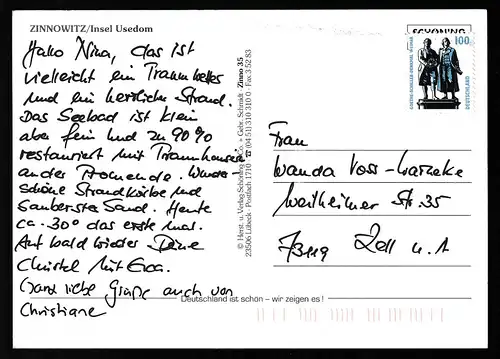 ZINNOWITZ/Insel Usedom
Hallo Nina, das ist
vielleicht ein Traumwetter
und ein herrlicher Strand.
Das Seebad ist klein
aber fein und zu 90%
restauriert mit Traumhäusern
an der Promenade. Wunder-
schöne Strandkörbe und
sauberster Sand. Heute
ca. 30° das erste mal.
Auf bald wieder Deine
Christel mit Eva.
Ganz liebe Grüße auch von
Christiane
© Horst u. Verlag Schöning & Co. + Gebr. Schmidt · Zinno 35
23506 Lübeck · Postfach 1710 ☎ (04 51) 310 310 0 · Fax 3 52 83
Deutschland ist schön – wir zeigen es !
SCHÖNING
100
GOETHE-SCHILLER-DENKMAL WEIMAR
DEUTSCHLAND
Frau
Wanda Voss-
Weilheimer Str. 35
73119 Zell u. A